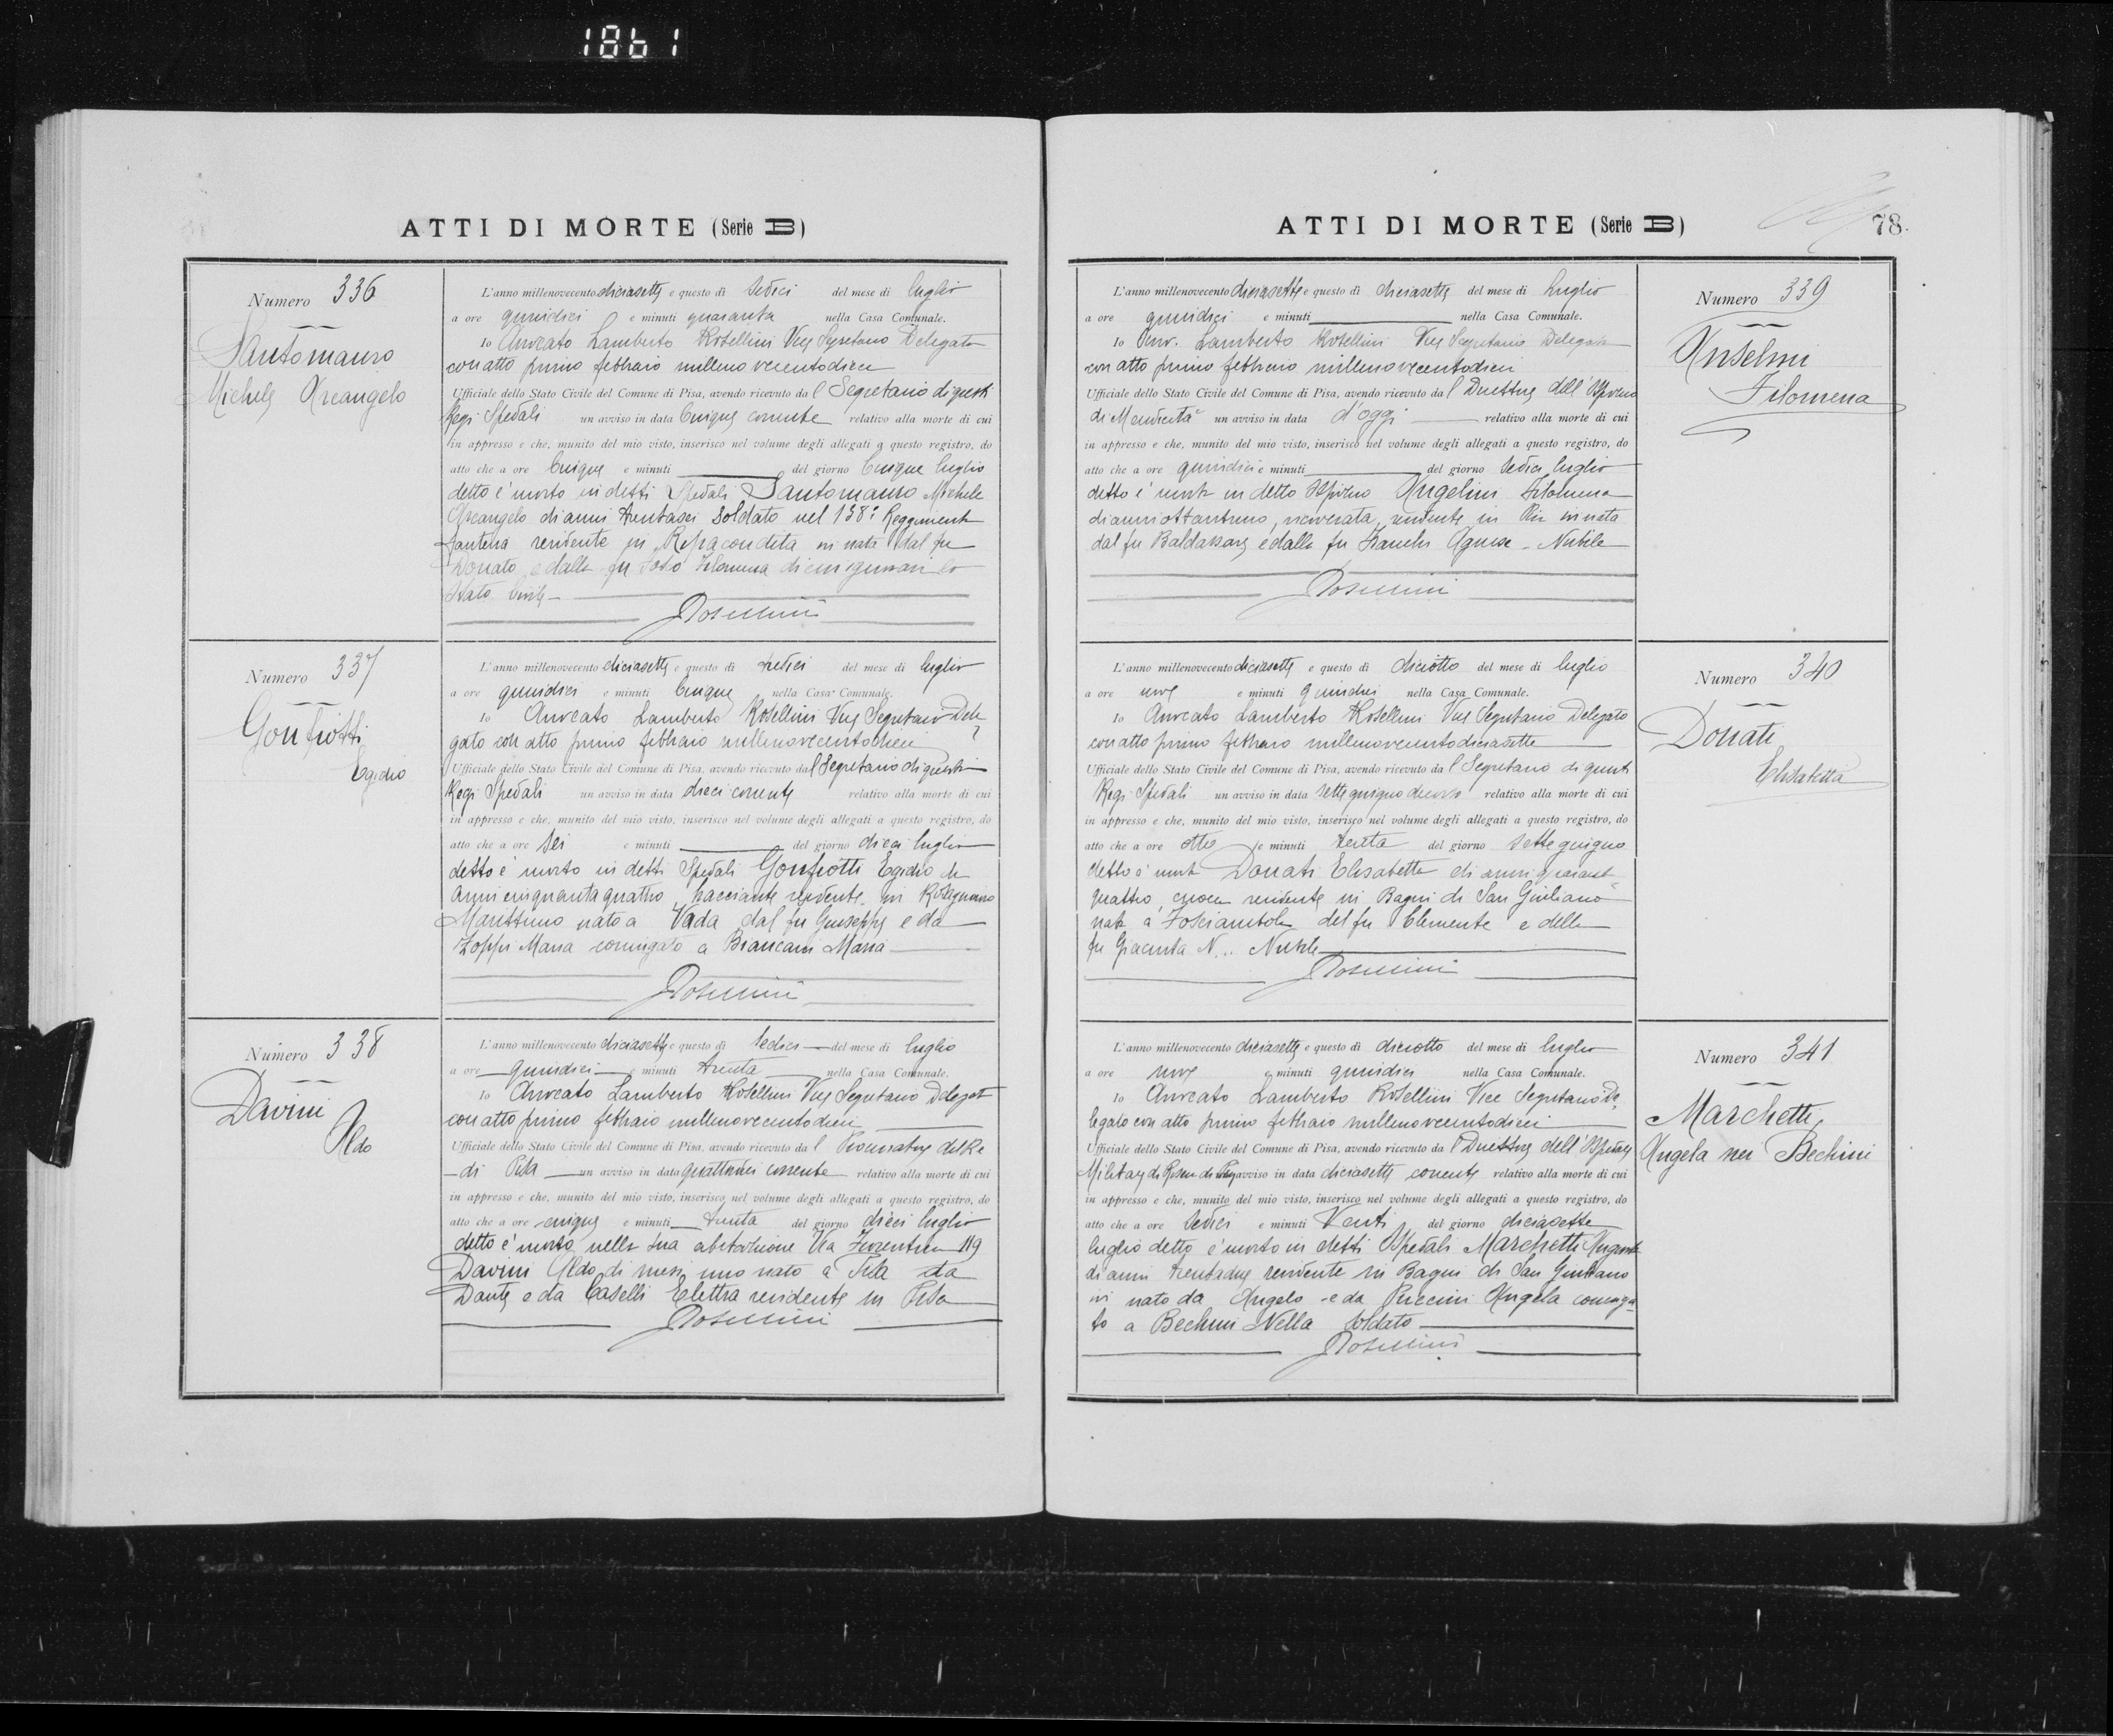 1861
ATTI DI MORTE (Serie B)
Numero 336
Santomauro
Michele Arcangelo
L'anno millenovecento diciasette e questo dì sedici del mese di luglio
a ore quindici e minuti quaranta nella Casa Comunale.
Io Avvocato Lamberto Rosellini Vice Segretario Delegato
con atto primo febbraio millenovecentodieci
Ufficiale dello Stato Civile del Comune di Pisa, avendo ricevuto dal Segretario di questi
Regi Spedali un avviso in data Cinque corrente relativo alla morte di cui
in appresso e che, munito del mio visto, inserisco nel volume degli allegati a questo registro, do
atto che a ore Cinque e minuti del giorno Cinque luglio
detto è morto in detti Spedali Santomauro Michele
Arcangelo di anni trentasei soldato nel 138° Reggimento
fanteria residente in Ripacondita ivi nato dal fu
Donato e dalla fu Filomena di cui ignorasi lo
Stato Civile
Rosellini
Numero 337
Gonfiotti
Egidio
L'anno millenovecento diciasette e questo dì sedici del mese di luglio
a ore quindici e minuti Cinque nella Casa Comunale.
Io Avvocato Lamberto Rosellini Vice Segretario Dele
gato con atto primo febbraio millenovecentodieci
Ufficiale dello Stato Civile del Comune di Pisa, avendo ricevuto dal Segretario di questi
Regi Spedali un avviso in data dieci corrente relativo alla morte di cui
in appresso e che, munito del mio visto, inserisco nel volume degli allegati a questo registro, do
atto che a ore sei e minuti del giorno dieci luglio
detto è morto in detti Spedali Gonfiotti Egidio di
anni cinquantaquattro bracciante residente in Rosignano
Marittimo nato a Vada dal fu Giuseppe e da
Zoppi Maria coniugato a Biancani Maria
Rosellini
Numero 338
Davini
Aldo
L'anno millenovecento diciasette e questo dì sedici del mese di luglio
a ore quindici e minuti trenta nella Casa Comunale.
Io Avvocato Lamberto Rosellini Vice Segretario Delegato
con atto primo febbraio millenovecentodieci
Ufficiale dello Stato Civile del Comune di Pisa, avendo ricevuto dal Procuratore del Re
di Pisa un avviso in data quattordici corrente relativo alla morte di cui
in appresso e che, munito del mio visto, inserisco nel volume degli allegati a questo registro, do
atto che a ore cinque e minuti trenta del giorno dieci luglio
detto è morto nella sua abitazione Via Fiorentina 119
Davini Aldo di mesi uno nato a Pisa da
Dante e da Caselli Elettra residente in Pisa
Rosellini
ATTI DI MORTE (Serie B)
78.
L'anno millenovecento diciasette e questo dì diciasette del mese di luglio
a ore quindici e minuti nella Casa Comunale.
Io Avv. Lamberto Rosellini Vice Segretario Delegato
con atto primo febbraio millenovecentodieci
Ufficiale dello Stato Civile del Comune di Pisa, avendo ricevuto dal Direttore dell'Ospizio
di Mendicità un avviso in data d'oggi relativo alla morte di cui
in appresso e che, munito del mio visto, inserisco nel volume degli allegati a questo registro, do
atto che a ore quindici e minuti del giorno sedici luglio
detto è morta in detto Ospizio Angelini Filomena
di anni ottantuno, ricoverata, residente in Pisa ivi nata
dal fu Baldassare e dalla fu Franchi Agnese - Nubile
Rosellini
Numero 339
Anselmi
Filomena
L'anno millenovecento diciasette e questo dì diciotto del mese di luglio
a ore nove e minuti quindici nella Casa Comunale.
Io Avvocato Lamberto Rosellini Vice Segretario Delegato
con atto primo febbraio millenovecentodiciasette
Ufficiale dello Stato Civile del Comune di Pisa, avendo ricevuto dal Segretario di questi
Regi Spedali un avviso in data sette giugno decorso relativo alla morte di cui
in appresso e che, munito del mio visto, inserisco nel volume degli allegati a questo registro, do
atto che a ore otto e minuti trenta del giorno sette giugno
detto è morta Donati Elisabetta di anni quaranta
quattro, cuoca residente in Bagni di San Giuliano
nata a Fosciandola del fu Clemente e della
fu Giacinta N... Nubile
Rosellini
Numero 340
Donati
Elisabetta
L'anno millenovecento diciasette e questo dì diciotto del mese di luglio
a ore nove e minuti quindici nella Casa Comunale.
Io Avvocato Lamberto Rosellini Vice Segretario De
legato con atto primo febbraio millenovecentodieci
Ufficiale dello Stato Civile del Comune di Pisa, avendo ricevuto dal Direttore dell'Ospedale
Militare di Riserva di Pisa un avviso in data diciasette corrente relativo alla morte di cui
in appresso e che, munito del mio visto, inserisco nel volume degli allegati a questo registro, do
atto che a ore sedici e minuti Venti del giorno diciasette
luglio detto è morto in detti Ospedali Marchetti Augusto
di anni trentadue residente in Bagni di San Giuliano
ivi nato da Angelo e da Puccini Angela coniuga
to a Bechini Nella soldato
Rosellini
Numero 341
Marchetti
Angela nei Bechini